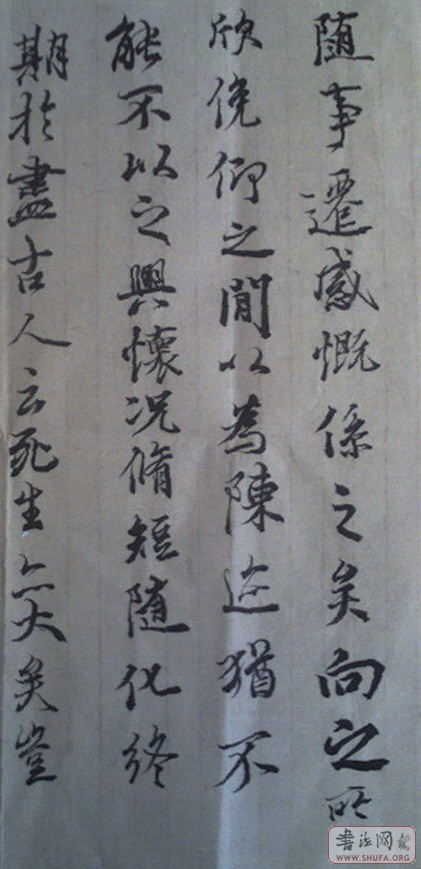 随事遷感慨係之矣向之所
欣俛仰之間以為陳迹猶不
能不以之興懷况脩短随化終
期於盡古人云死生亦大矣豈
書法网
WWW.SHUFA.ORG